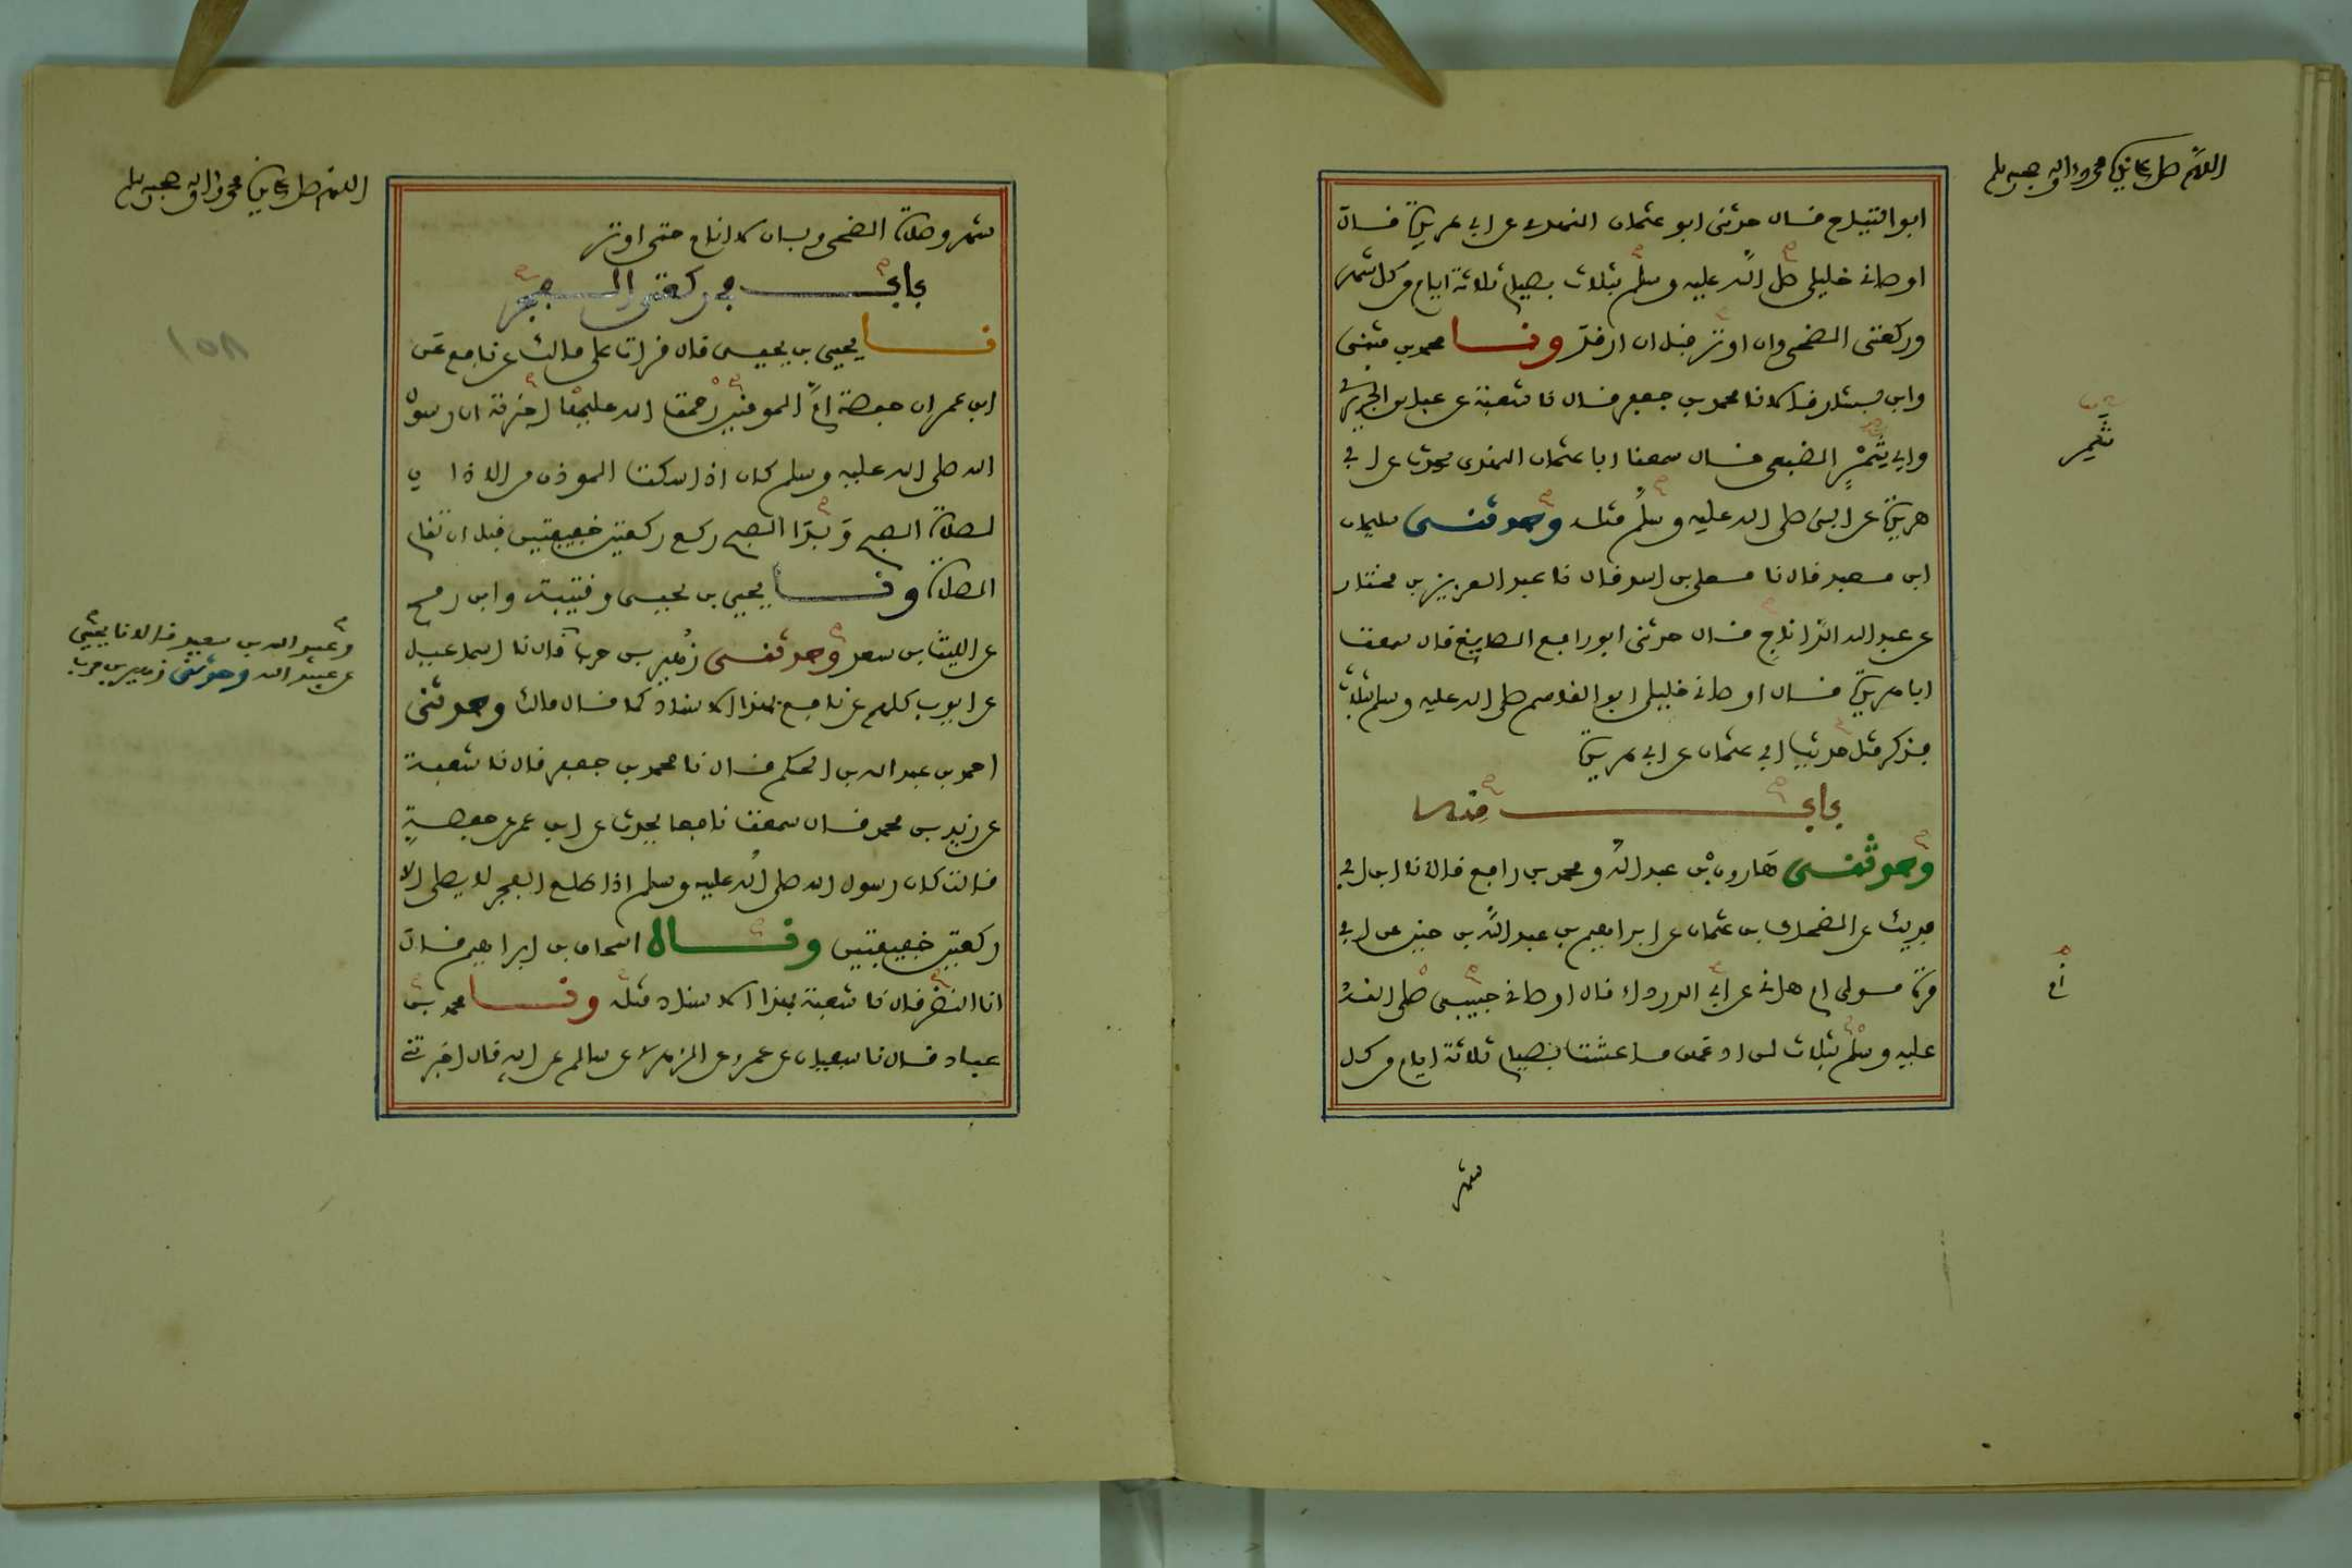 اللهم صل على نبينا محمد واله وصحبه وسلم
ابو التياح قال حدثنى ابو عثمان النهدى عن ابى هريرة قال
اوصانى خليلى صلى الله عليه وسلم بثلاث بصيام ثلاثة ايام من كل شهر
وركعتى الضحى وان اوتر قبل ان ارقد ونا محمد بن مثنى
وابن بشار قالا نا محمد بن جعفر قال نا شعبة عن عباس الجريرى
وابى شمر الضبعى قال سمعنا ابا عثمان النهدى يحدث عن ابى
هريرة عن النبى صلى الله عليه وسلم مثله وحدثنى سليمان
ابن معبد قال نا معلى بن اسد قال نا عبد العزيز بن مختار
عن عبد الله الداناج قال حدثنى ابو رافع الصايغ قال سمعت
ابا هريرة قال اوصانى خليلى ابو القاسم صلى الله عليه وسلم بثلاث
فذكر مثل حديث ابى عثمان عن ابى هريرة
باب منه
وحدثنى هارون بن عبد الله ومحمد بن رافع قالا نا ابن ابى
فديك عن الضحاك بن عثمان عن ابراهيم بن عبد الله بن حنين عن ابى
مرة مولى ام هانى عن ابى الدرداء قال اوصانى حبيبى صلى الله
عليه وسلم بثلاث لن ادعهن ما عشت بصيام ثلاثة ايام من كل
شهر
اللهم صل على نبينا محمد واله وصحبه وسلم
شهر وصلاة الضحى وبان لا انام حتى اوتر
باب فى ركعتى الفجر
نا يحيى بن يحيى قال قرات على مالك عن نافع عن
ابن عمر ان حفصة ام المومنين رحمة الله عليها اخبرته ان رسول
الله صلى الله عليه وسلم كان اذا سكت الموذن من الاذان
لصلاة الصبح وبدا الصبح ركع ركعتين خفيفتين قبل ان تقام
الصلاة ونا يحيى بن يحيى وقتيبة وابن رمح
عن الليث بن سعد وحدثنى زهير بن حرب قال نا اسماعيل
عن ايوب كلهم عن نافع بهذا الاسناد كما قال مالك وحدثنى
احمد بن عبد الله بن الحكم قال نا محمد بن جعفر قال نا شعبة
عن زيد بن محمد قال سمعت نافعا يحدث عن ابن عمر عن حفصة
قالت كان رسول الله صلى الله عليه وسلم اذا طلع الفجر لا يصلى الا
ركعتين خفيفتين وقال اسحاق بن ابراهيم قال
انا النضر قال نا شعبة بهذا الاسناد مثله ونا محمد بن
عباد قال نا سفيان عن عمرو عن الزهرى عن سالم عن ابيه قال اخبرتنى
وعبيد الله بن سعيد قالا نا يحيى
عن عبيد الله وحدثنى زهير بن حرب
١٥٨